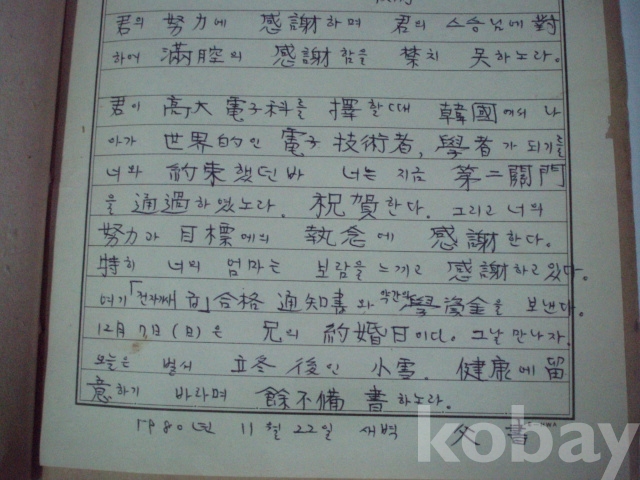 君의 努力에 感謝하며 君의 스승님에 對
하여 滿腔의 感謝함을 禁치 못하노라.
君이 高大 電子科를 擇할때 韓國에서 나
아가 世界的인 電子技術者, 學者가 되기를
너와 約束했던바 너는 지금 第二關門
을 通過하였노라. 祝賀한다. 그리고 너의
努力과 目標에의 執念에 感謝한다.
特히 너의 엄마는 보람을 느끼고 感謝하고 있다.
여기 「전자기 合格 通知書와 약간의 學資金을 보낸다.
12月 7日(日)은 兄의 約婚日이다. 그날 만나자.
오늘은 벌써 立冬 後인 小雪. 健康에 留
意하기 바라며 餘不備 書하노라.
1980년 11월 22일 새벽 父 書
kobay